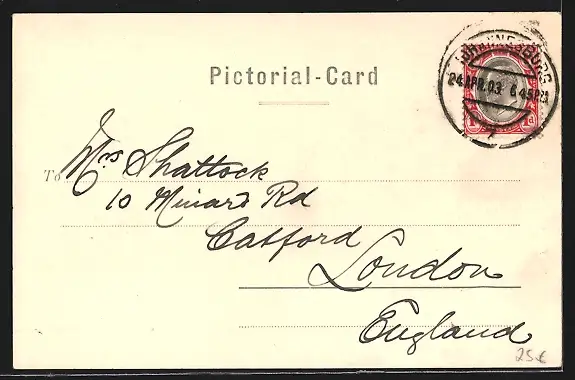 Pictorial-Card
JOHANNESBURG
24 APR. 03 6 45 PM
To Mrs Shattock
10 Minard Rd
Catford
London
England
25.€